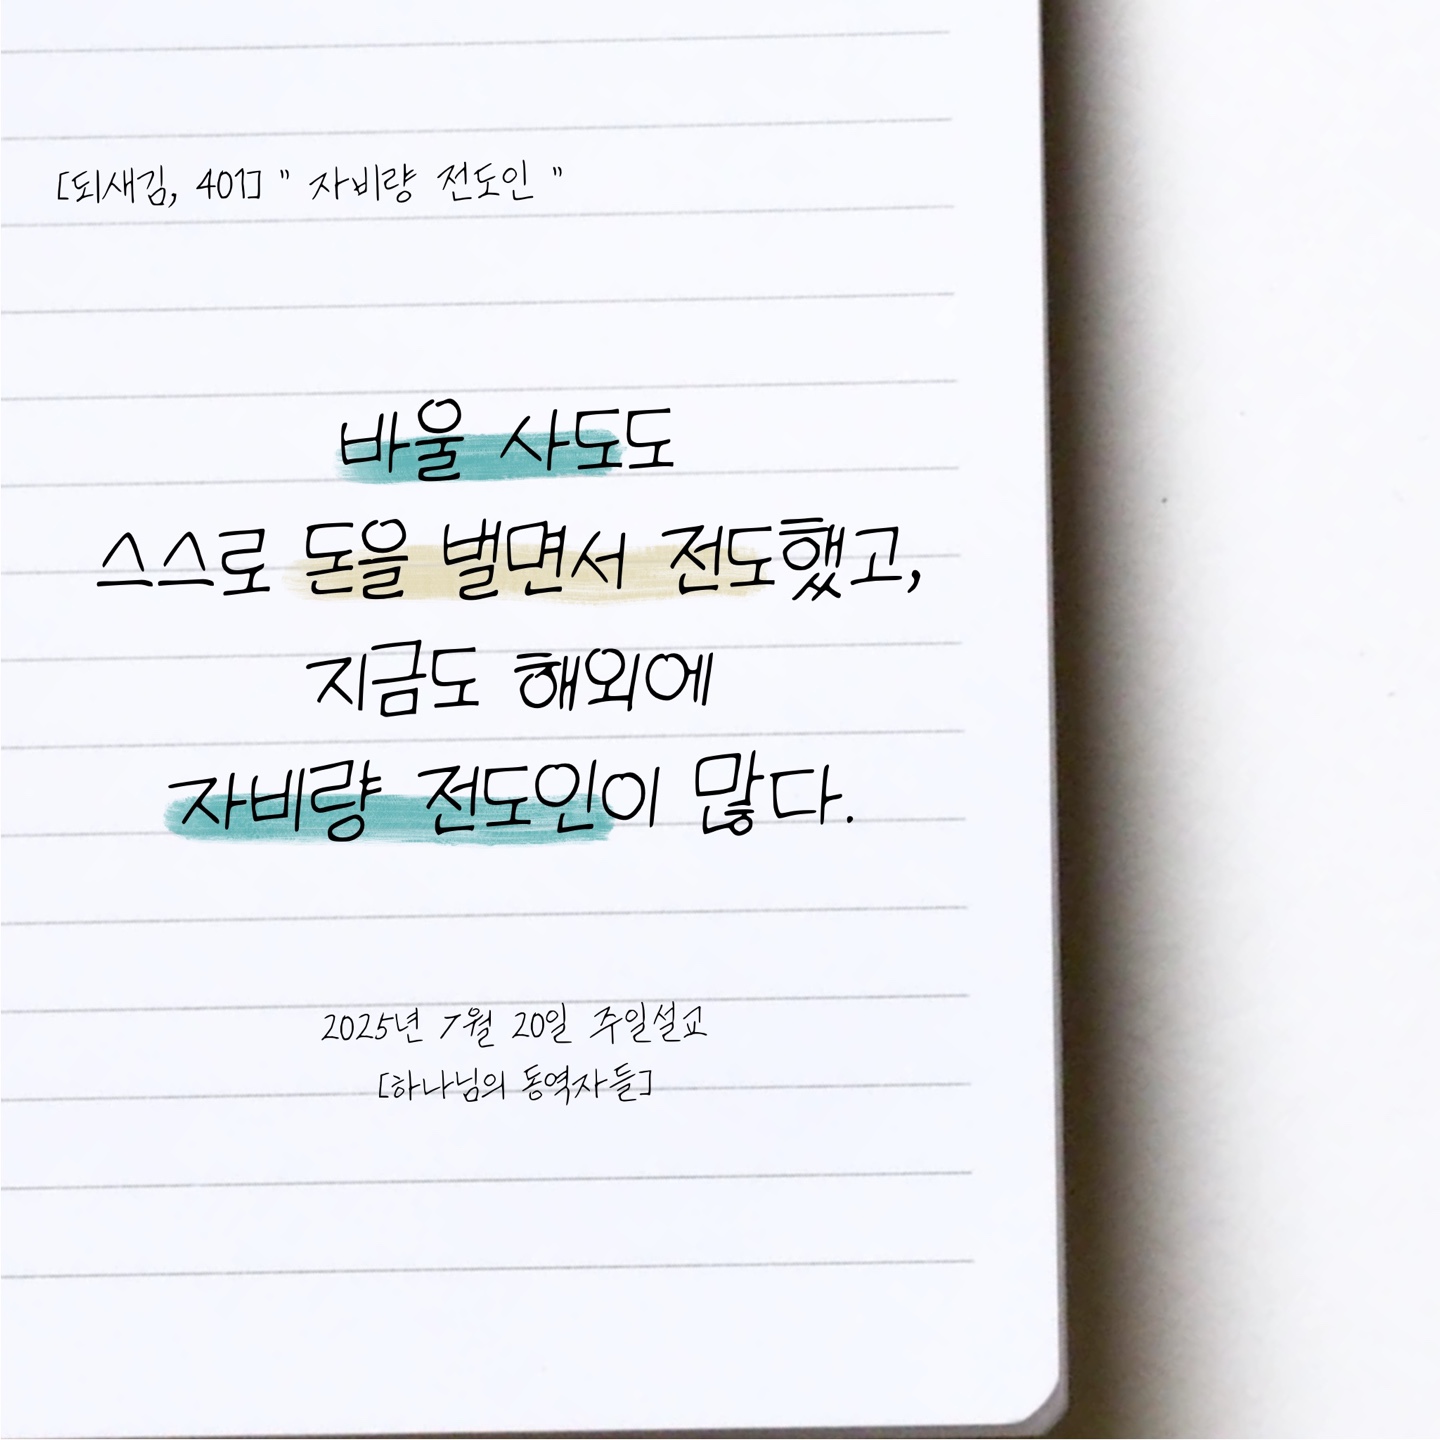 [되새김, 401] " 자비량 전도인 "
바울 사도도
스스로 돈을 벌면서 전도했고,
지금도 해외에
자비량 전도인이 많다.
2025년 7월 20일 주일설교
[하나님의 동역자들]